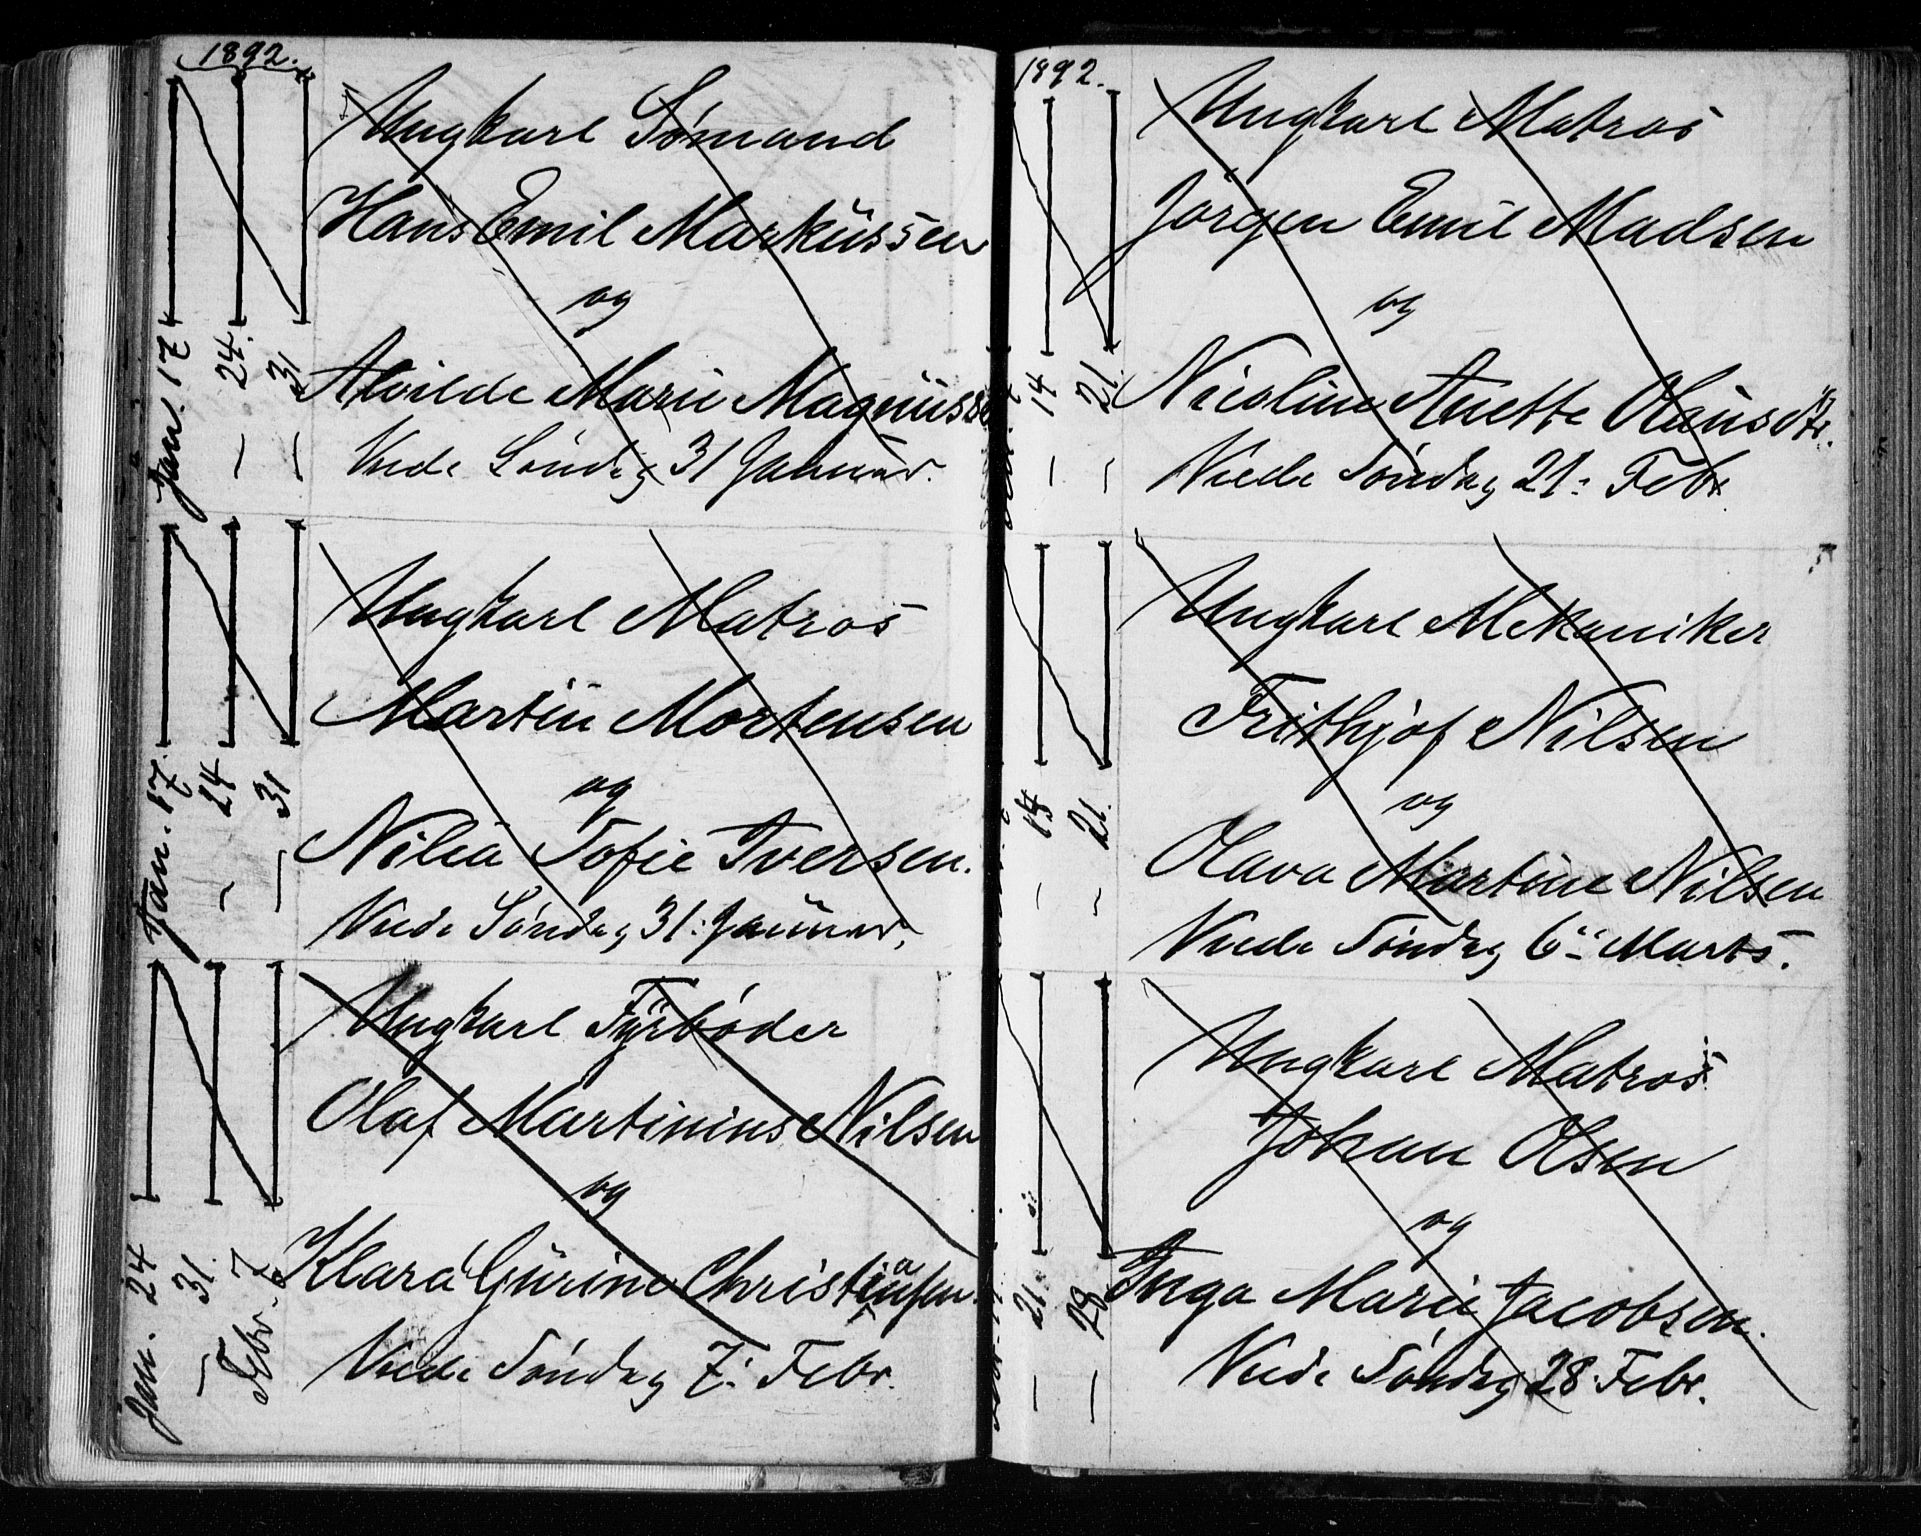 1892.
Ungkarl Sømand
Hans Emil Markussen
og
Alvilde Marie Magnuss
Viede Søndag 31 Januar.
Jan. 17
— 24.
— 31
Ungkarl Matros
Martin Mortensen
og
Nilia Sofie Iversen.
Viede Søndag 31: Januar.
Jan. 17.
— 24
— 31
Ungkarl Fyrbøder
Olaf Martinius Nilsen
og
Klara Gurine Christiansen.
Viede Søndag 7: Febr.
Jan. 24
— 31.
Febr. 7
1892.
Ungkarl Matros
Jørgen Emil Madsen
og
Nicoline Anette Olausdtr.
Viede Søndag 21: Febr
— 14
— 21.
Ungkarl Mekaniker
Frithjof Nilsen
og
Olava Martine Nilsen
Viede Søndag 6 Marts.
— 14
— 21.
Ungkarl Matros
Johan Olsen
og
Inga Marie Jacobsen.
Viede Søndag 28 Febr.
— 21.
— 28